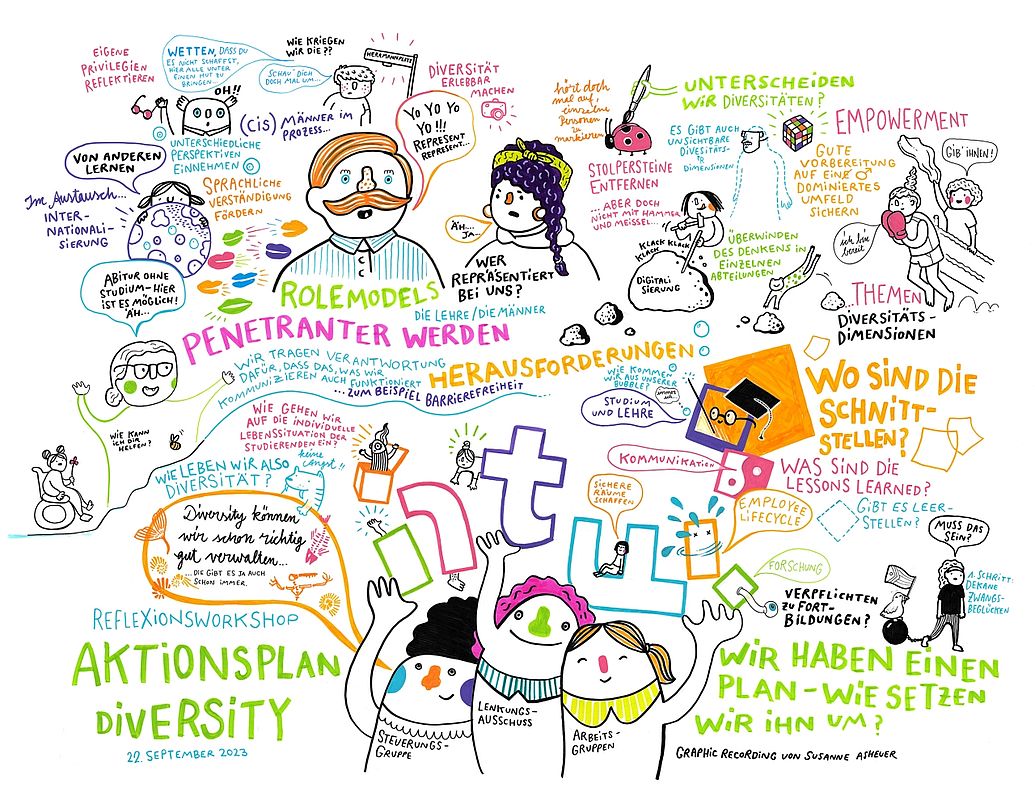 EIGENE
PRIVILEGIEN
REFLEKTIEREN
WETTEN, DASS DU
ES NICHT SCHAFFST,
HIER ALLE UNTER
EINEN HUT ZU
BRINGEN...
OH!!
WIE KRIEGEN
WIR DIE??
SCHAU' DICH
DOCH MAL UM...
HERRMANNPLATZ
(CIS) MÄNNER IM
PROZESS...
UNTERSCHIEDLICHE
PERSPEKTIVEN
EINNEHMEN
DIVERSITÄT
ERLEBBAR
MACHEN
YO YO YO
YO!!!
REPRESENT
REPRESENT...
VON ANDEREN
LERNEN
Im Austausch...
INTER-
NATIONALI-
SIERUNG
SPRACHLICHE
VERSTÄNDIGUNG
FÖRDERN
ÄH...
JA...
WER
REPRÄSENTIERT
BEI UNS?
DIE LEHRE/DIE MÄNNER
ROLEMODELS
PENETRANTER WERDEN
hört doch
mal auf,
einzelne
Personen
zu
markieren
UNTERSCHEIDEN
WIR DIVERSITÄTEN?
STOLPERSTEINE
ENTFERNEN
... ABER DOCH
NICHT MIT HAMMER
UND MEISSEL...
ES GIBT AUCH
UNSICHTBARE
DIVESITÄTS-
DIMENSIONEN
KLACK KLACK
KLACK
DIGITALI-
SIERUNG
ÜBERWINDEN
DES DENKENS IN
EINZELNEN
ABTEILUNGEN
EMPOWERMENT
GUTE
VORBEREITUNG
AUF EIN ♂
DOMINIERTES
UMFELD
SICHERN
GIB' IHNEN!
ich bin
bereit
...THEMEN
DIVERSITÄTS-
DIMENSIONEN
ABITUR OHNE
STUDIUM-HIER
IST ES MÖGLICH!
ÄH...
WIR TRAGEN VERANTWORTUNG
DAFÜR, DASS DAS, WAS WIR
KOMMUNIZIEREN AUCH FUNKTIONIERT
...ZUM BEISPIEL BARRIEREFREIHEIT
HERAUSFORDERUNGEN
WIE KOMMEN
WIR AUS UNSERER
BUBBLE?
STUDIUM
UND LEHRE
WO SIND DIE
SCHNITT-
STELLEN?
WIE KANN
ICH DIR
HELFEN?
WIE GEHEN WIR
AUF DIE INDIVIDUELLE
LEBENSSITUATION DER
STUDIERENDEN EIN?
WIE LEBEN WIR ALSO
DIVERSITÄT?
keine
Angst!!
KOMMUNIKATION
WAS SIND DIE
LESSONS LEARNED?
SICHERE
RÄUME
SCHAFFEN
EMPLOYEE
LIFECYCLE
GIBT ES LEER-
STELLEN?
Diversity können
wir schon richtig
gut verwalten...
...DIE GIBT ES JA AUCH
SCHON IMMER.
ntu
FORSCHUNG
VERPFLICHTEN
ZU FORT-
BILDUNGEN?
MUSS DAS
SEIN?
1. SCHRITT:
DEKANE
ZWANGS-
BEGLÜCKEN
REFLEXIONSWORKSHOP
AKTIONSPLAN
DIVERSITY
22. SEPTEMBER 2023
STEUERUNGS-
GRUPPE
LENKUNGS-
AUSSCHUSS
ARBEITS-
GRUPPEN
WIR HABEN EINEN
PLAN - WIE SETZEN
WIR IHN UM?
GRAPHIC RECORDING VON SUSANNE ASHEUER